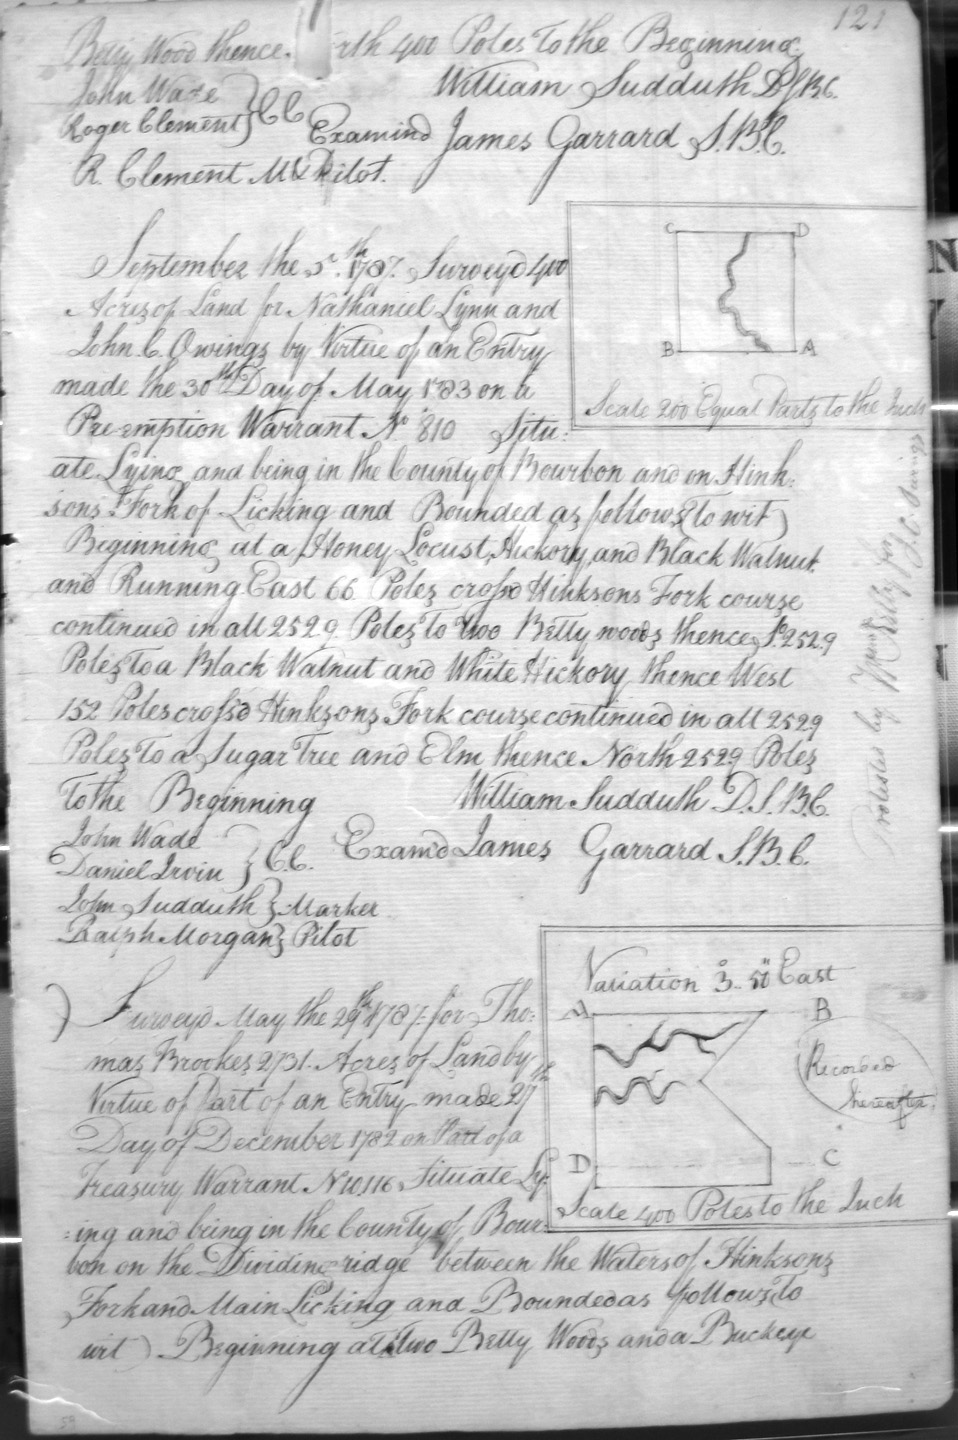 121
Betty Wood thence. rth 400 Poles to the Beginning
John Wade } CC William Sudduth DSBC.
Roger Clement
Examind James Garrard S.B.C.
R. Clement M & Pilot.
C D
B A
Scale 200 Equal Parts to the Inch
September the 5th. 1787. Surveyd 400
Acres of Land for Nathaniel Lynn and
John C. Owings by Virtue of an Entry
made the 30th Day of May 1783 on a
Pre-emption Warrant No 810 Situ:
ate Lying and being in the County of Bourbon and on Hink:
sons Fork of Licking and Bounded as follows (To wit)
Beginning at a Honey Locust, Hickory, and Black Walnut
and Running East 66 Poles crossd Hinksons Fork course
continued in all 252.9 Poles to two Betty woods thence So. 252.9
Poles to a Black Walnut and White Hickory thence West
152 Poles crossd Hinksons Fork course continued in all 252.9
Poles to a Sugar Tree and Elm thence North 252.9 Poles
to the Beginning William Sudduth D.S.B.C.
John Wade } C.C. Examd James Garrard S.B.C.
Daniel Irvin
John Sudduth } Marker
Ralph Morgan } Pilot
Variation 3° 50" East
A B
Recorded
hereafter.
D C
Scale 400 Poles to the Inch
Surveyd May the 29th 1787 for Tho:
mas Brookes 2731. Acres of Land by
Virtue of Part of an Entry made 27th
Day of December 1782 on Part of a
Treasury Warrant No 10116 Situate Ly:
:ing and being in the County of Bour:
bon on the Dividing ridge between the Waters of Hinksons
Fork and Main Licking and Bounded as follows (To
wit) Beginning at two Betty Woods and a Buckeye